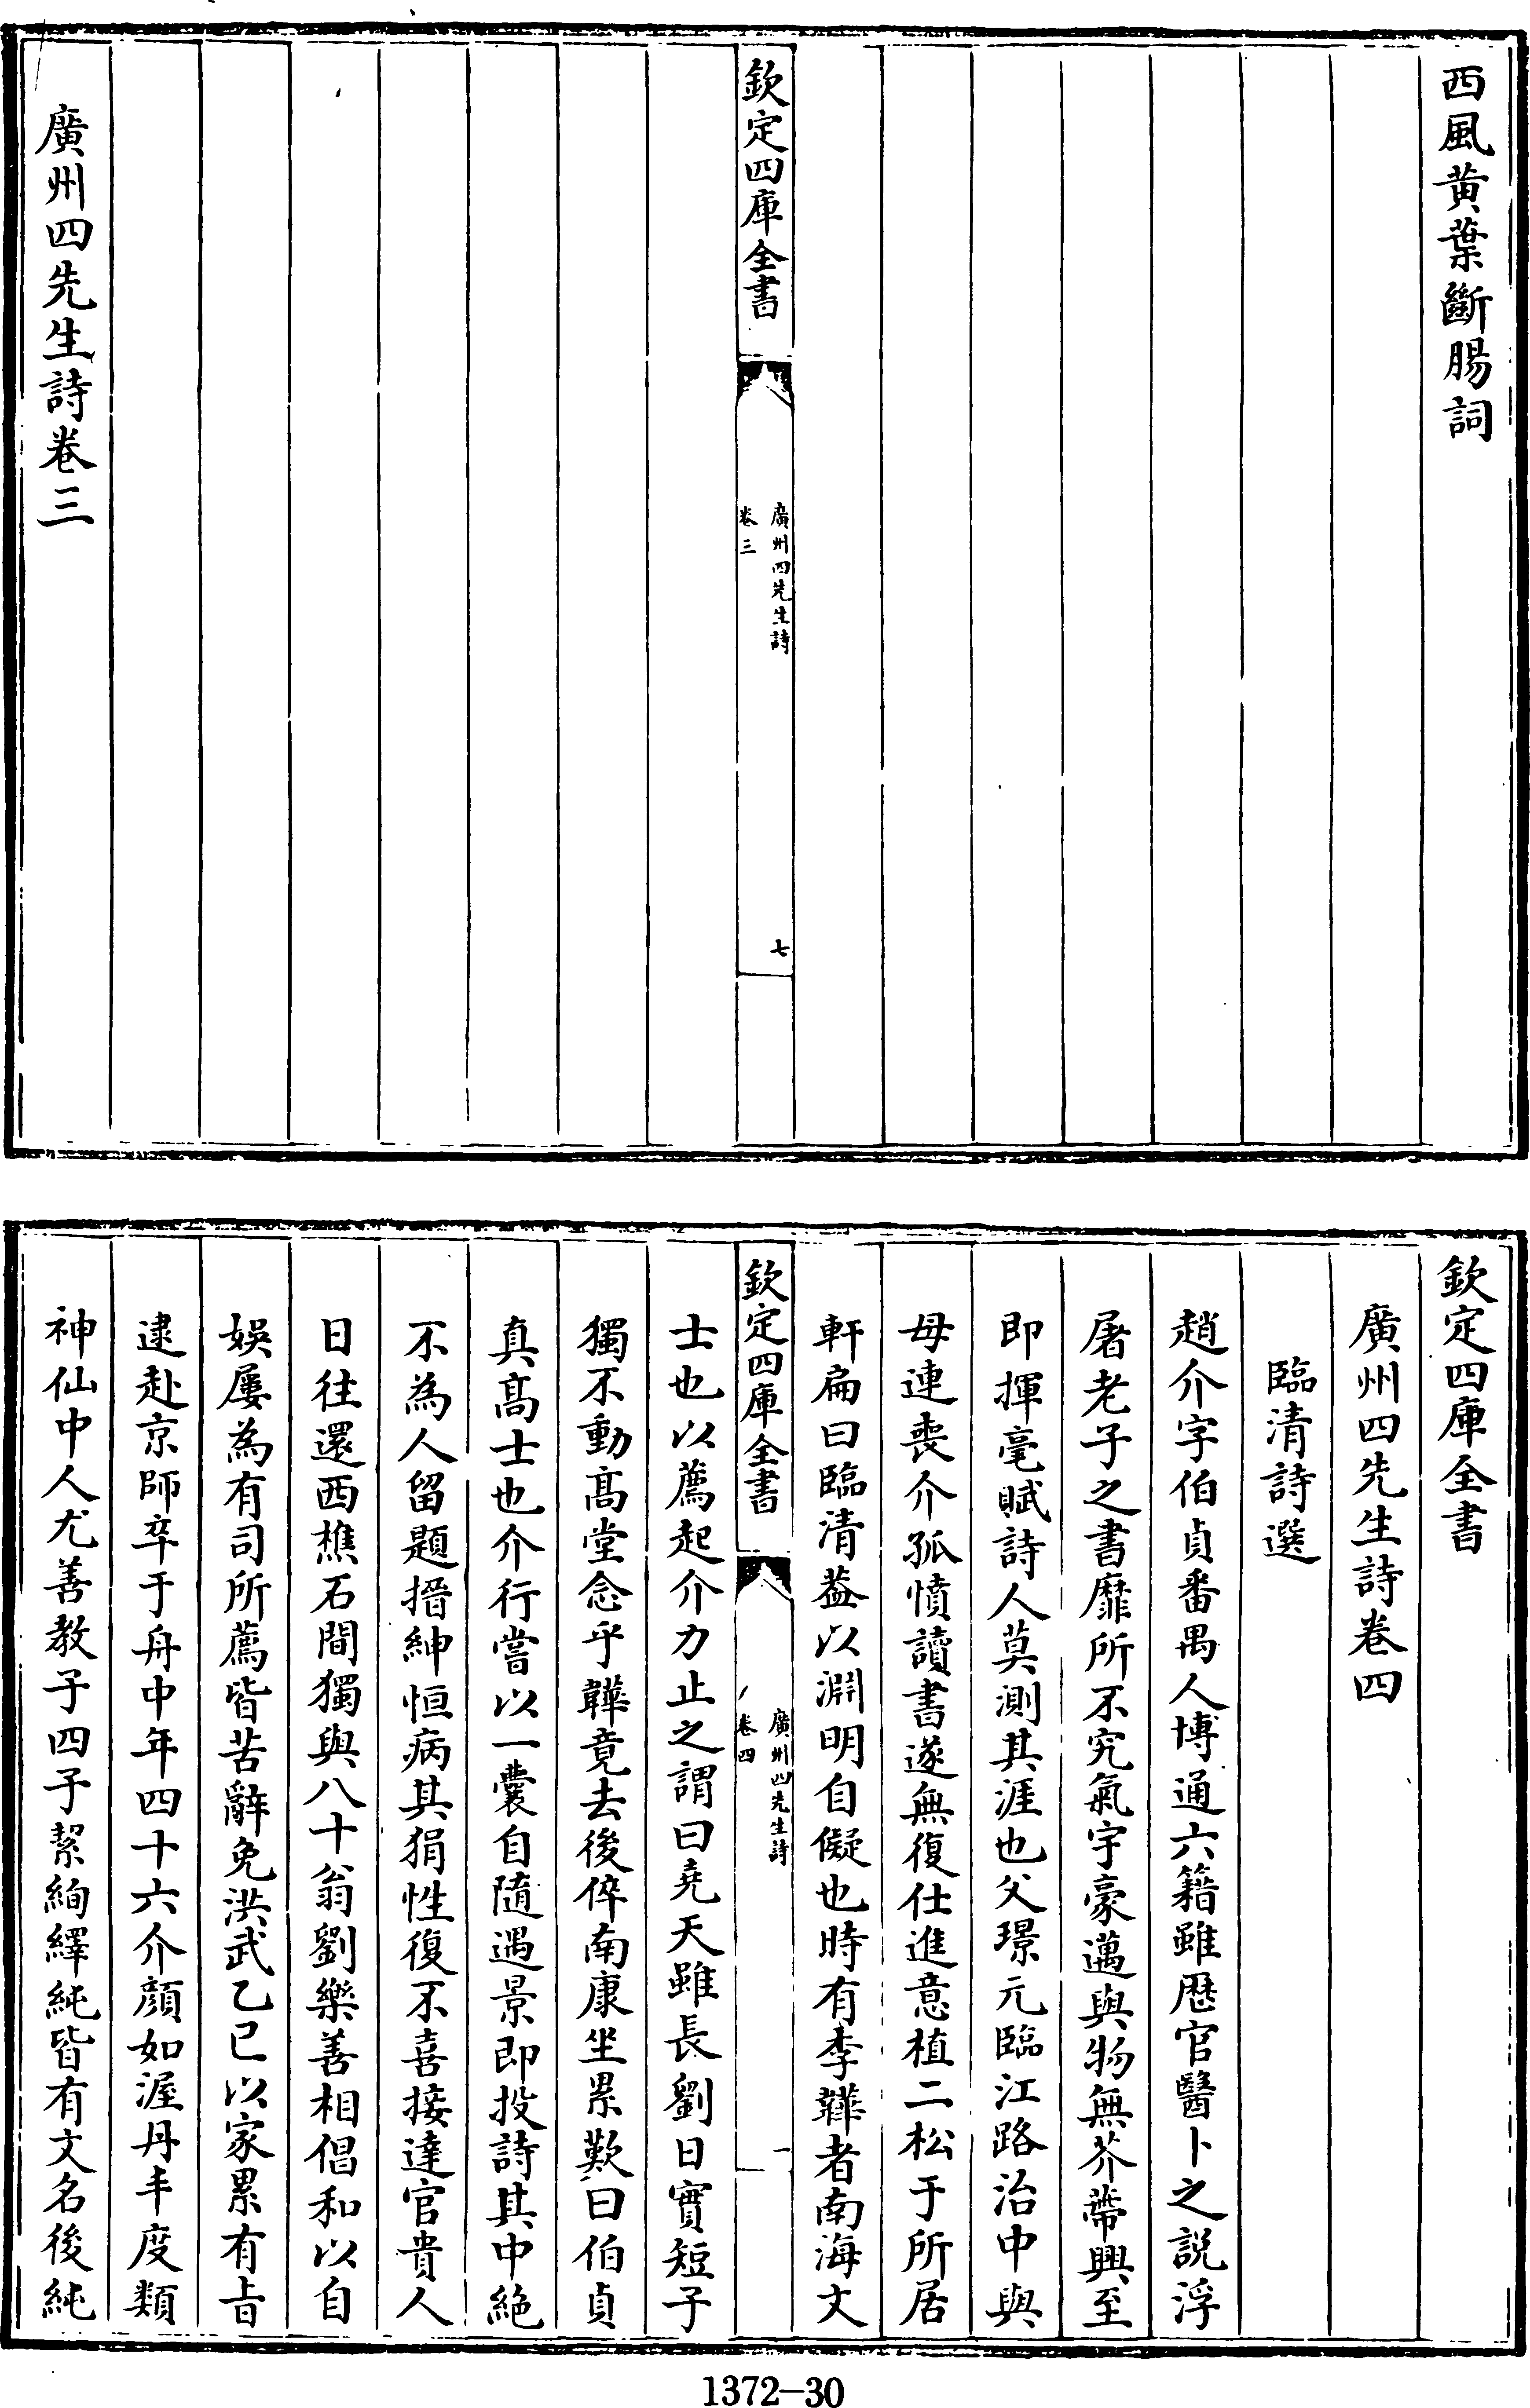 西風黄葉斷腸詞
欽定四庫全書
廣州四先生詩
卷三
七
廣州四先生詩卷三
欽定四庫全書
廣州四先生詩卷四
臨清詩選
趙介字伯貞番禺人博通六籍雖歴官醫卜之說浮
屠老子之書靡所不究氣宇豪邁與物無芥蔕興至
即揮毫賦詩人莫測其涯也父璟元臨江路治中與
母連喪介孤憤讀書遂無復仕進意植二松于所居
軒扁曰臨清葢以淵明自儗也時有李韡者南海文
欽定四庫全書
廣州四先生詩
卷四
一
士也以薦起介力止之謂曰堯天雖長劉日實短子
獨不動髙堂念乎韡竟去後倅南康坐累歎曰伯貞
真髙士也介行嘗以一囊自隨遇景即投詩其中絶
不為人留題搢紳恒病其狷性復不喜接達官貴人
日徃還西樵石間獨與八十翁劉樂善相倡和以自
娛屢為有司所薦皆苦辭免洪武乙巳以家累有旨
逮赴京師卒于舟中年四十六介顔如渥丹丰度類
神仙中人尤善教子四子絜絢繹純皆有文名後純
1372-30